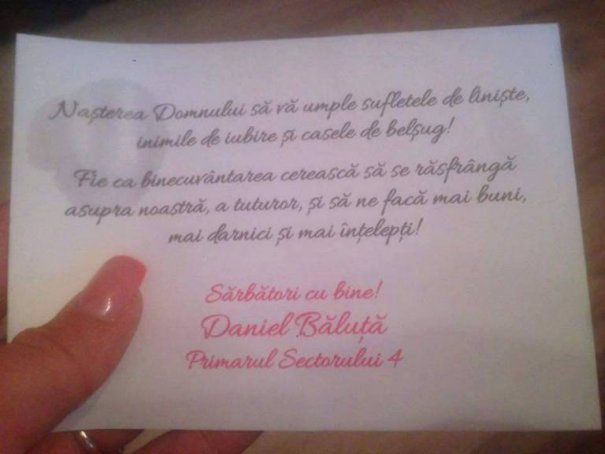 Nașterea Domnului să vă umple sufletele de liniște,
inimile de iubire și casele de belșug!
Fie ca binecuvântarea cerească să se răsfrângă
asupra noastră, a tuturor, și să ne facă mai buni,
mai darnici și mai înțelepți!
Sărbători cu bine!
Daniel Băluță
Primarul Sectorului 4